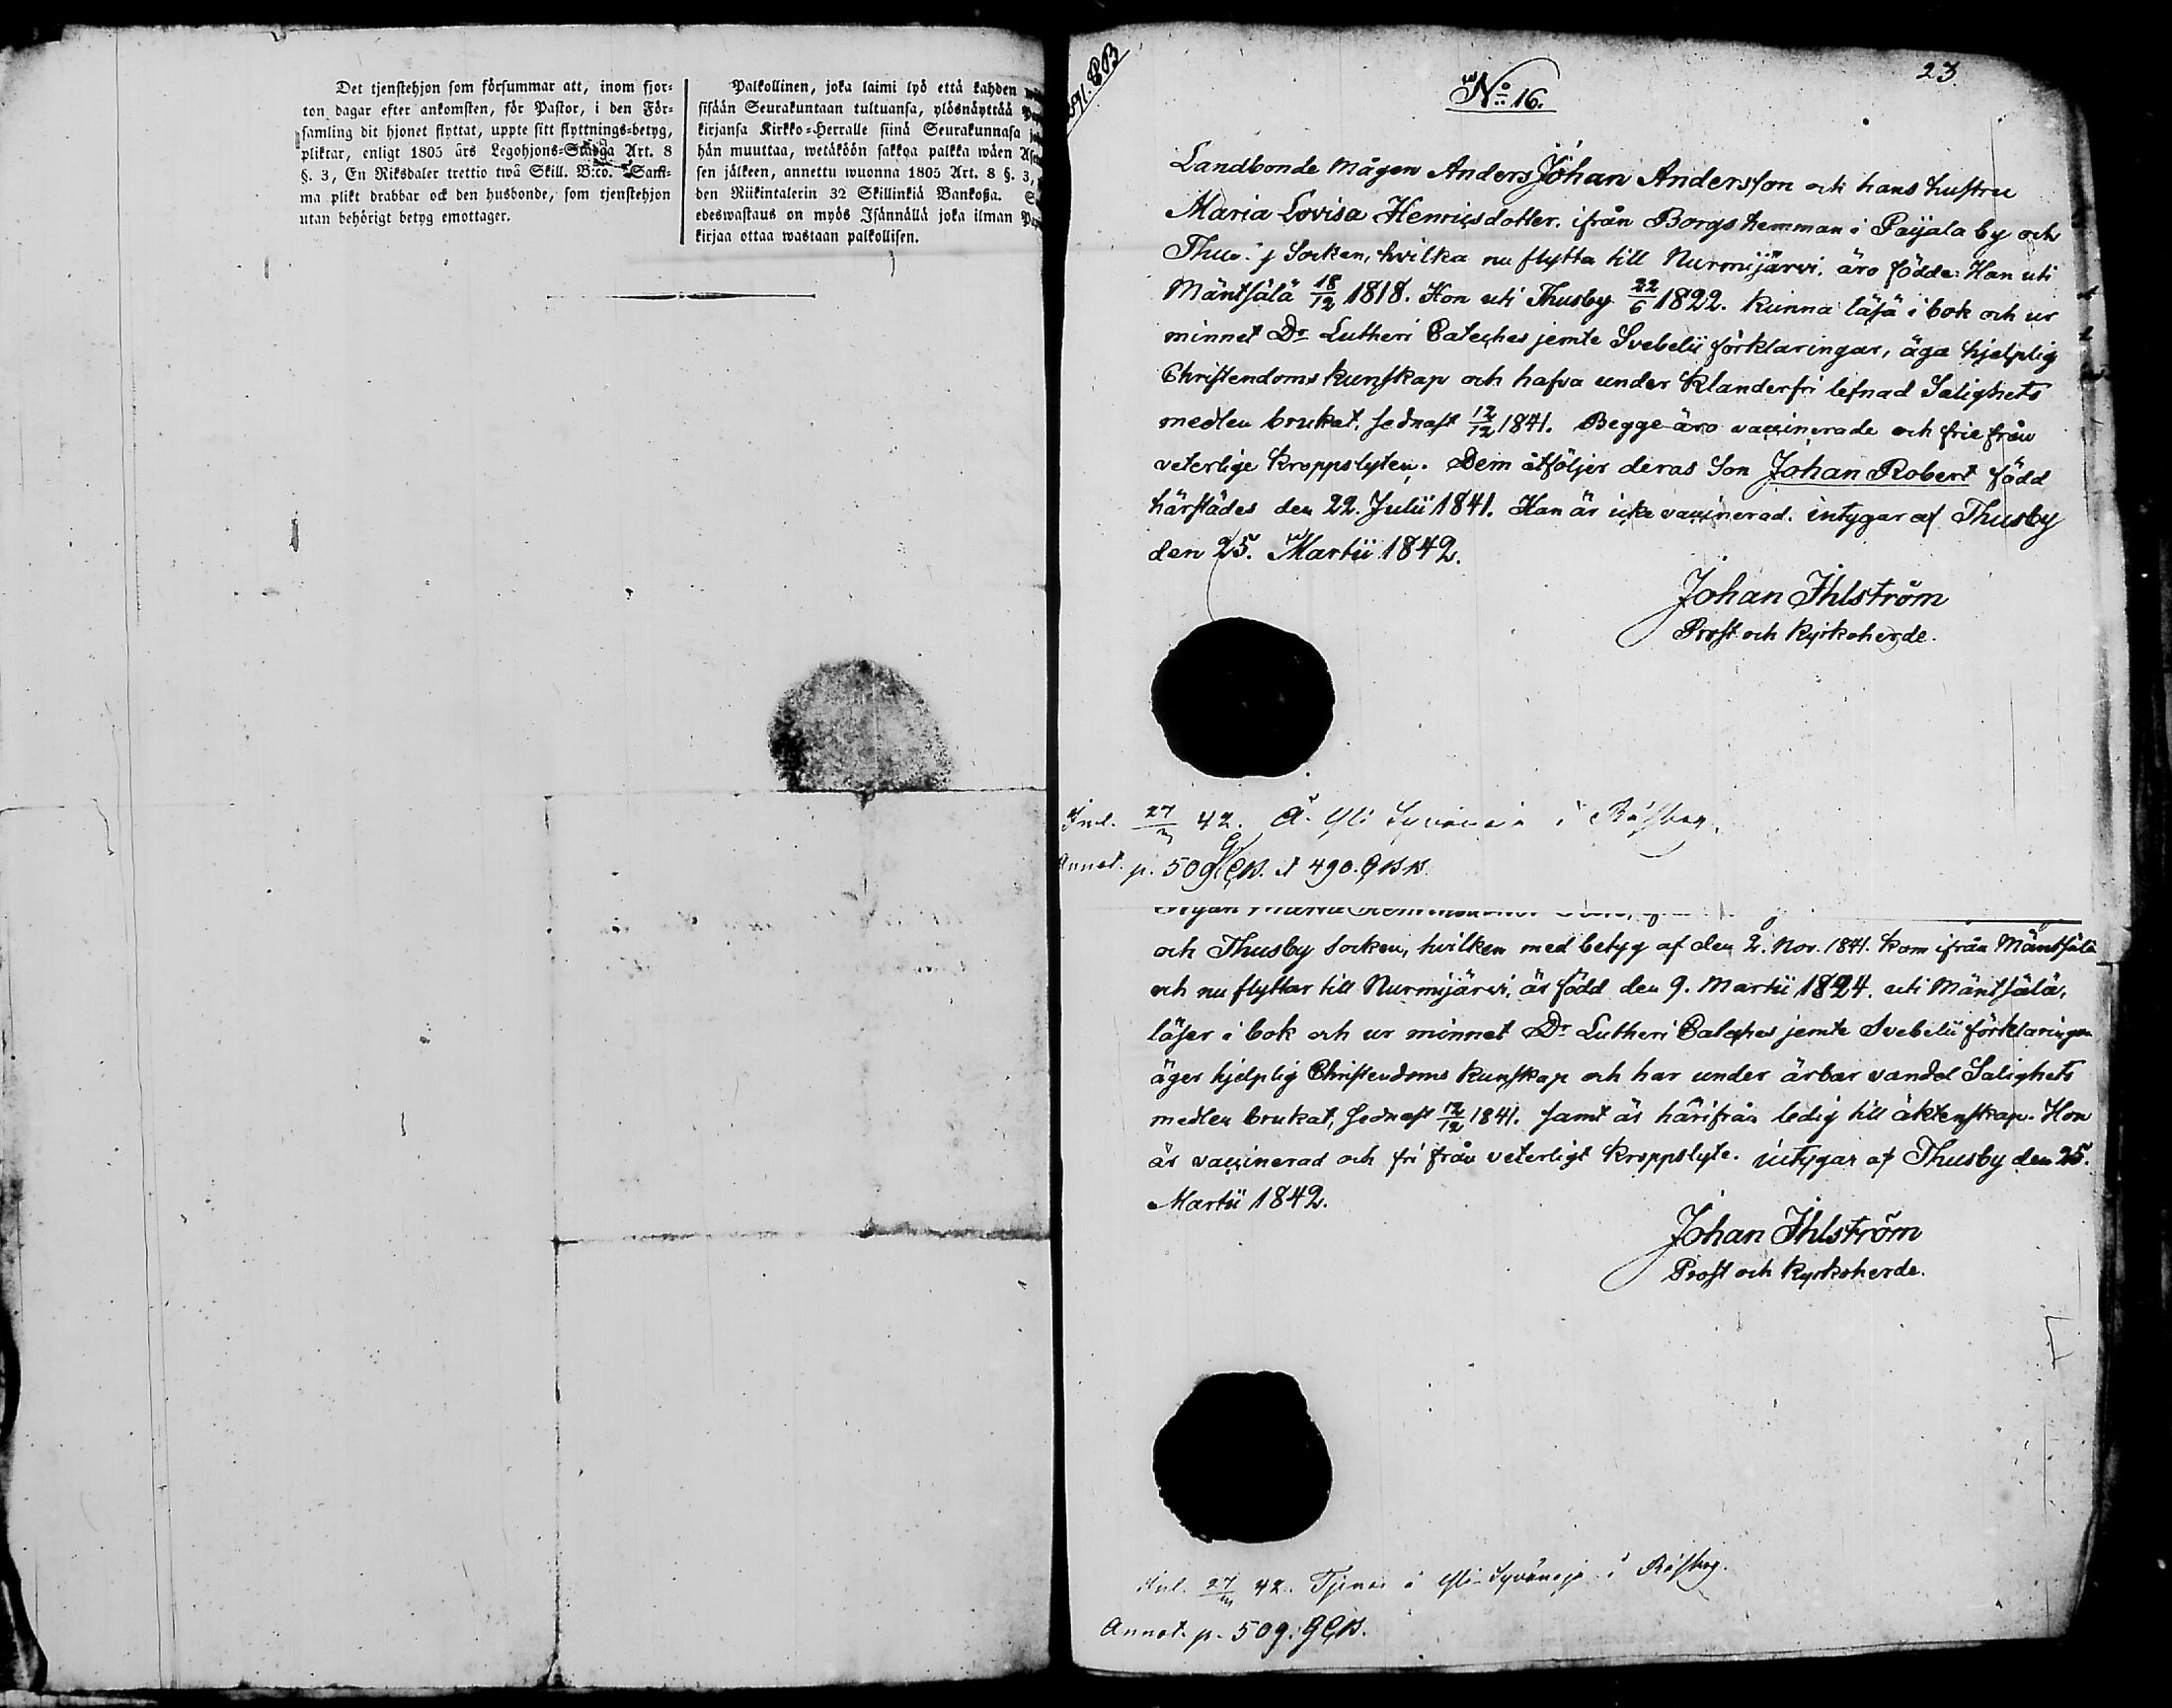 Det tjenstehjon som försummar att, inom fjor-
ton dagar efter ankomsten, för Pastor, i den För-
samling dit hjonet flyttat, uppte sitt flyttnings-betyg,
pliktar, enligt 1805 års Legohjons-Stadga Art. 8
§. 3, En Riksdaler trettio twå Skill. B:co. Sam-
ma plikt drabbar ock den husbonde, som tjenstehjon
utan behörigt betyg emottager.
Palkollinen, joka laimi lyö että kahden
sisään Seurakuntaan tultuansa, ylösnäyttää
kirjansa Kirkko-Herralle siinä Seurakunnasa
hän muuttaa, wetäköön sakkoa palkka wäen
sen jälkeen, annettu wuonna 1805 Art. 8 §. 3,
den Riikintalerin 32 Skillinkiä Bankoßa.
edeswastaus on myös Isännällä joka ilman
kirjaa ottaa wastaan palkollisen.
23
No 16.
Landbonde mågen Anders Johan Andersson och hans hustru
Maria Lovisa Henricsdotter, ifrån Borgs hemman i Paijala by och
Socken, hvilka nu flytta till Nurmijärvi, äro födde: Han uti
Mäntsälä 18/12 1818. Hon uti Thusby 22/6 1822. kunna läsa i bok och ur
minnet Dr Lutheri Cateches jemte Svebelii förklaringar, äga hjelplig
Christendoms kunskap och hafva under klanderfri lefnad Salighets
medlen brukat, sednast 12/12 1841. Begge äro vaccinerade och frie från
veterlige kroppslyten. Dem åtföljer deras Son Johan Robert född
härstädes den 22. Julii 1841. Han är icke vaccinerad. intygar af Thusby
den 25. Martii 1842.
Johan Ihlström
Prost och Kyrkoherde.
Inl. 27/3 42. Å Yli i
Annot. p. 509
och Thusby Socken, hvilken med betyg af den 2. Nov. 1841. kom ifrån Mäntsälä
och nu flyttar till Nurmijärvi, är född den 9. Martii 1824. uti Mäntsälä,
läser i bok och ur minnet Dr Lutheri Cateches jemte Svebelii förklaringar
äger hjelplig Christendoms kunskap och har under ärbar vandel Salighets
medlen brukat, sednast 12/12 1841. samt är härifrån ledig till äktenskap. Hon
är vaccinerad och fri från veterligt kroppslyte. intygar af Thusby den 25.
Martii 1842.
Johan Ihlström
Prost och Kyrkoherde.
Inl. 27/3 42. Tjenar å Yli i
Annot. p. 509.